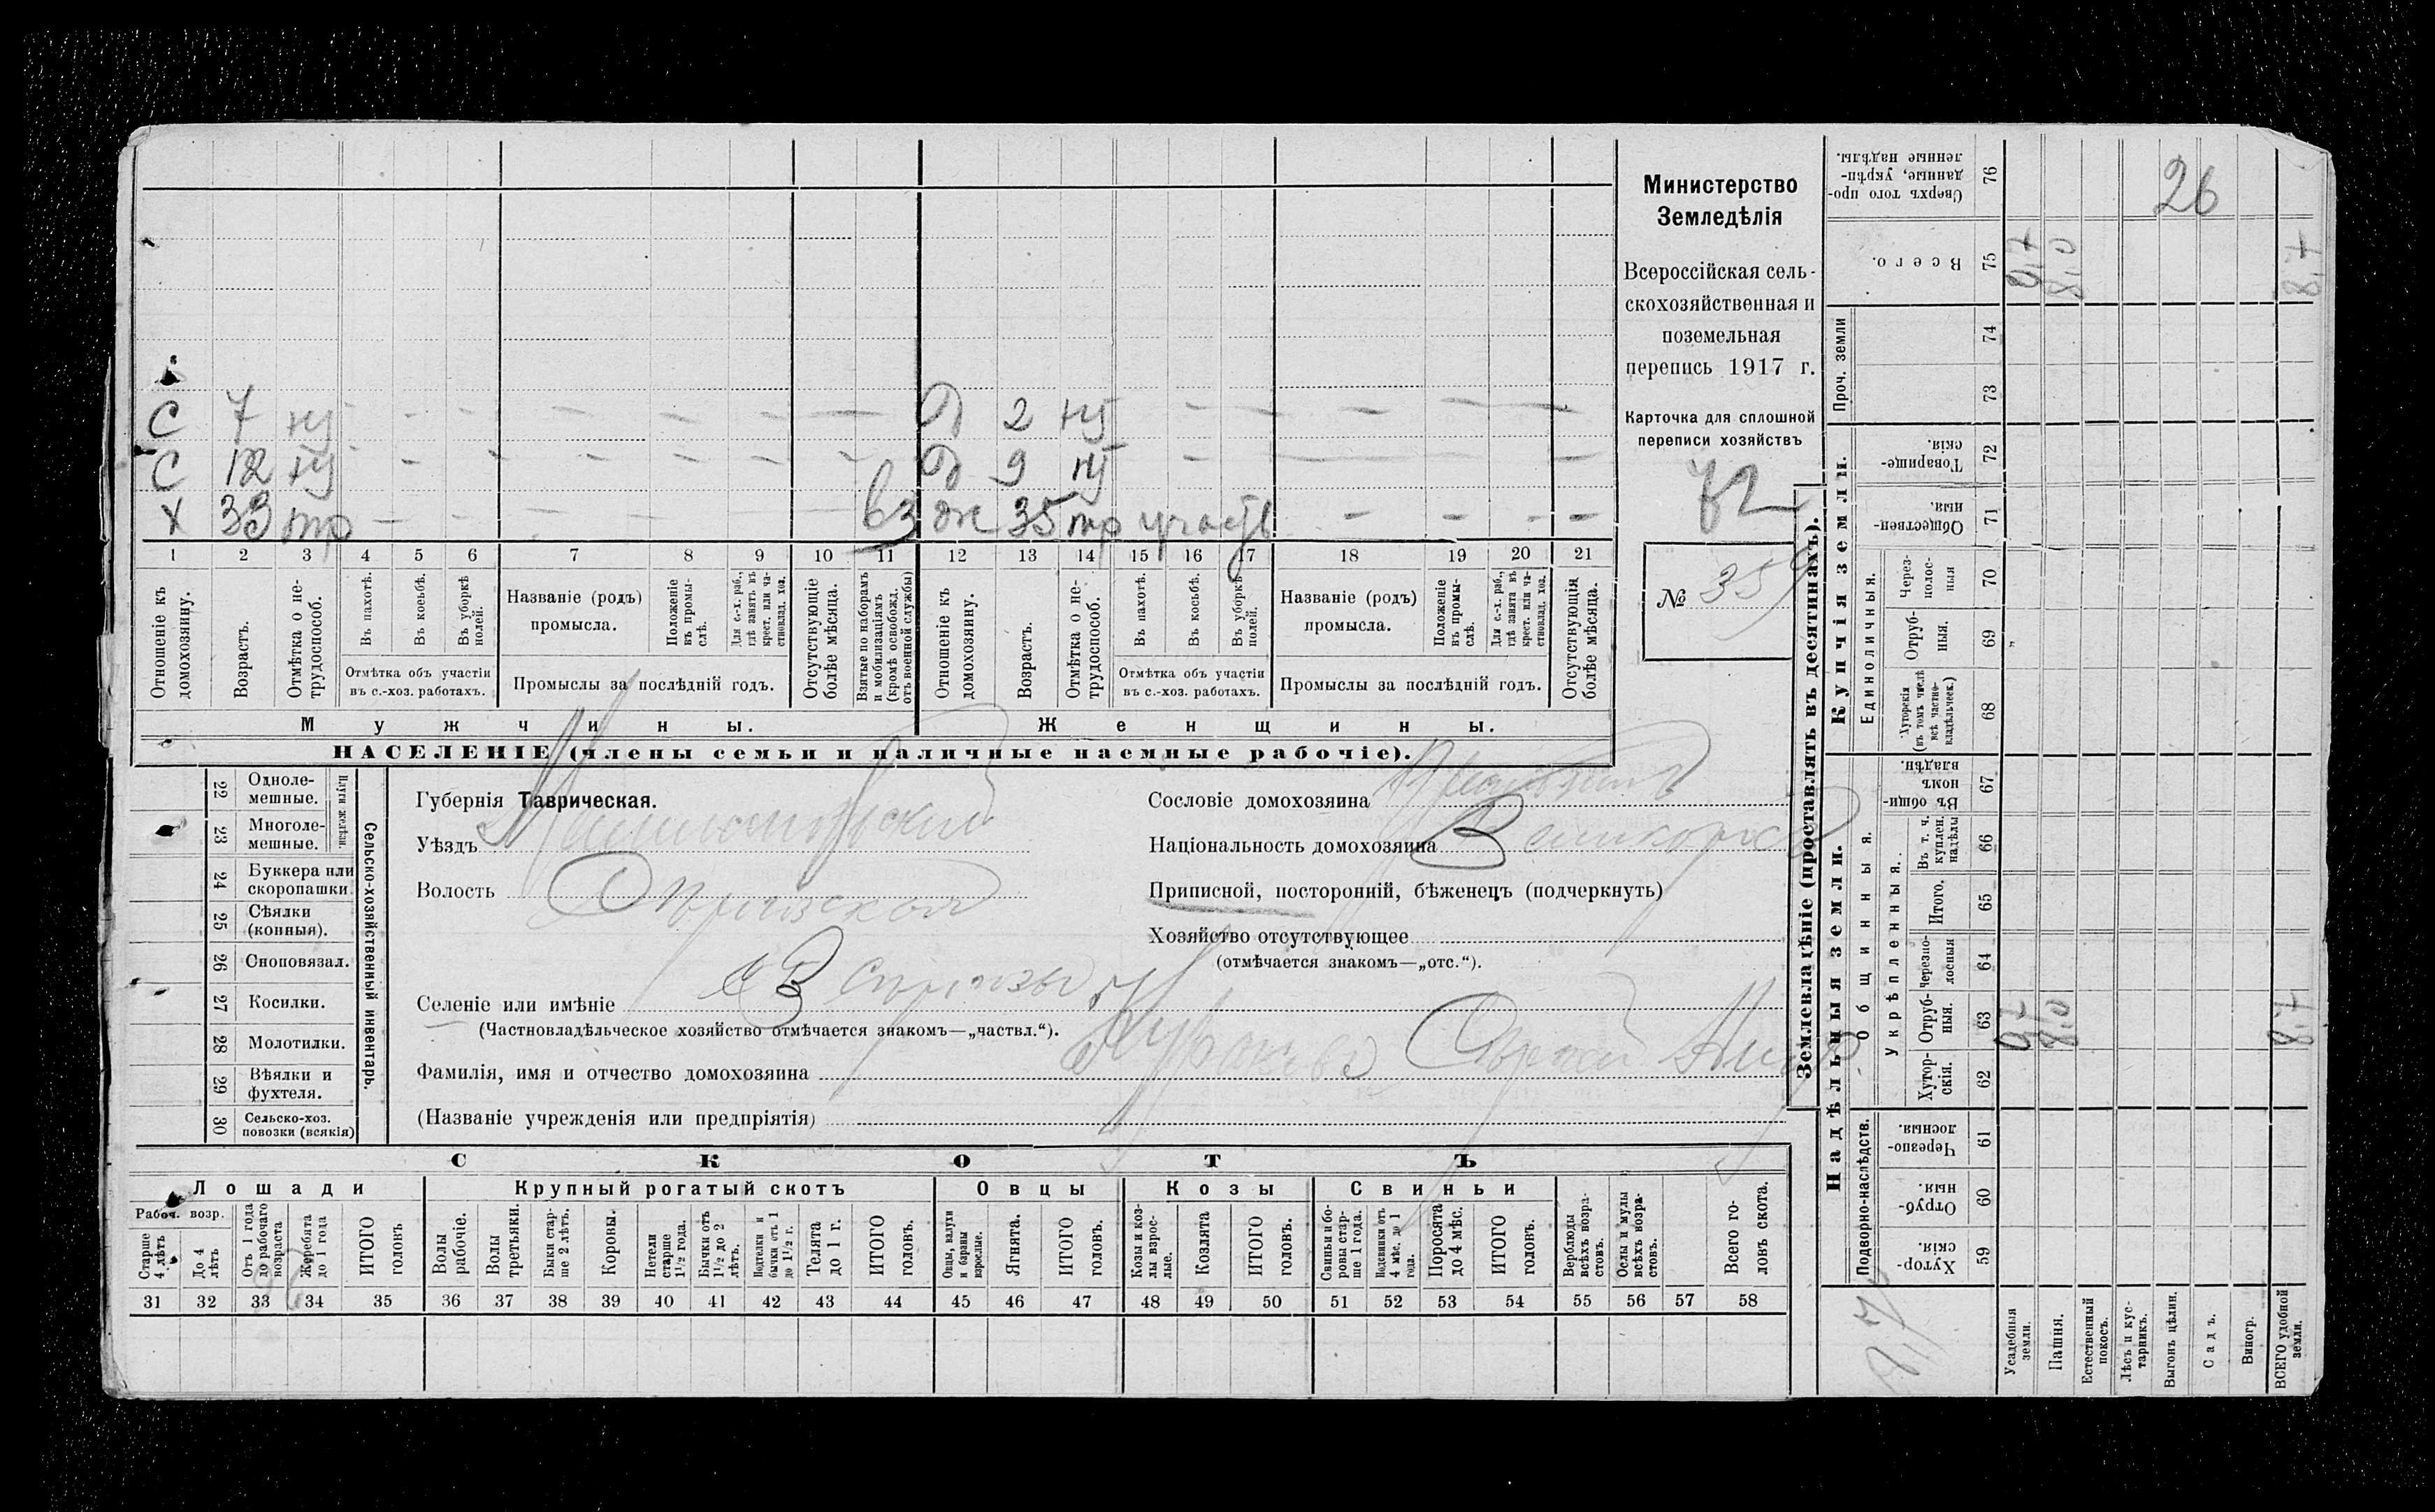 Министерство
Земледѣлія
Всероссійская сель-
скохозяйственная и
поземельная
перепись 1917 г.
Карточка для сплошной
переписи хозяйствъ
72
№ 359
26
С 7 нт - - - - - - - Д 2 нт - - - - -
С 12 нт - - - - - - - Д 9 нт - - -
Х 33 тр - - - - - вз ж 35 тр участв - - - -
1 2 3 4 5 6 7 8 9 10 11 12 13 14 15 16 17 18 19 20 21
Отношеніе къ домохозяину.
Возрастъ.
Отмѣтка о не-трудоспособ.
Въ пахотѣ.
Въ косьбѣ.
Въ уборкѣ полей.
Отмѣтка объ участіи
въ с.-хоз. работахъ.
Названіе (родъ)
промысла.
Положеніе въ промы-слѣ.
Для с.-х. раб., гдѣ занятъ въ крест. или ча-стновлад. хоз.
Промыслы за послѣдній годъ.
Отсутствующіе болѣе мѣсяца.
Взятые по наборамъ и мобилизаціямъ (кромѣ освобожд. отъ военной службы)
Отношеніе къ домохозяину.
Возрастъ.
Отмѣтка о не-трудоспособ.
Въ пахотѣ.
Въ косьбѣ.
Въ уборкѣ полей.
Отмѣтка объ участіи
въ с.-хоз. работахъ.
Названіе (родъ)
промысла.
Положеніе въ промы-слѣ.
Для с.-х. раб., гдѣ занята въ крест. или ча-стновлад. хоз.
Промыслы за послѣдній годъ.
Отсутствующія болѣе мѣсяца.
Мужчины.
Женщины.
НАСЕЛЕНІЕ (члены семьи и наличные наемные рабочіе).
Сельско-хозяйственный инвентарь.
Плуги желѣзн.
22 Одноле-мешные.
23 Многоле-мешные.
24 Буккера или скоропашки
25 Сѣялки (конныя).
26 Сноповязал.
27 Косилки.
28 Молотилки.
29 Вѣялки и фухтеля.
30 Сельско-хоз. повозки (всякія)
Губернія Таврическая.
Уѣздъ
Волость
Селеніе или имѣніе
(Частновладѣльческое хозяйство отмѣчается знакомъ—„частвл.“).
Фамилія, имя и отчество домохозяина
(Названіе учрежденія или предпріятія)
Сословіе домохозяина
Національность домохозяина
Приписной, посторонній, бѣженецъ (подчеркнуть)
Хозяйство отсутствующее
(отмѣчается знакомъ—„отс.“).
СКОТЪ
Лошади
Крупный рогатый скотъ
Овцы
Козы
Свиньи
Рабоч. возр.
Старше 4 лѣтъ
До 4 лѣтъ
Отъ 1 года до рабочаго возраста
Жеребята до 1 года
ИТОГО головъ
Волы рабочіе.
Волы третьяки.
Быки стар-ше 2 лѣтъ.
Коровы.
Нетели старше 1 1/2 года.
Бычки отъ 1 1/2 до 2 лѣтъ.
Подтелки и бычки отъ 1 до 1 1/2 г.
Телята до 1 г.
ИТОГО головъ.
Овцы, валухи и бараны взрослые.
Ягнята.
ИТОГО головъ.
Козы и коз-лы взрос-лые.
Козлята
ИТОГО головъ.
Свиньи и бо-ровы стар-ше 1 года.
Подсвинки отъ 4 мѣс. до 1 года.
Поросята до 4 мѣс.
ИТОГО головъ.
Верблюды всѣхъ возра-стовъ.
Ослы и мулы всѣхъ возра-стовъ.
Всего го-ловъ скота.
31 32 33 34 35 36 37 38 39 40 41 42 43 44 45 46 47 48 49 50 51 52 53 54 55 56 57 58
Землевладѣніе (проставлять въ десятинахъ).
Надѣльныя земли.
Купчія земли.
Проч. земли
Подворно-наслѣдств.
Общинныя.
Укрѣпленныя.
Единоличныя.
59 Хутор-скія.
60 Отруб-ныя.
61 Черезпо-лосныя.
62 Хутор-скія.
63 Отруб-ныя.
64 Черезпо-лосныя
65 Итого.
66 Въ т. ч. куплен. надѣлы
67 Въ общи-номъ владѣн.
68 Хуторскія (въ томъ числѣ всѣ частно-владѣльческ.)
69 Отруб-ныя.
70 Через-полос-ныя
71 Обществен-ныя.
72 Товарище-скія.
73
74
75 Всего.
76 Сверхъ того про-данные, укрѣп-ленные надѣлы.
Усадебныя земли. 0,7 0,7
Пашня. 8,0 8,0
Естественный покосъ.
Лѣсъ и кус-тарникъ.
Выгонъ цѣлин.
Садъ.
Виногр.
ВСЕГО удобной земли. 8,7 8,7